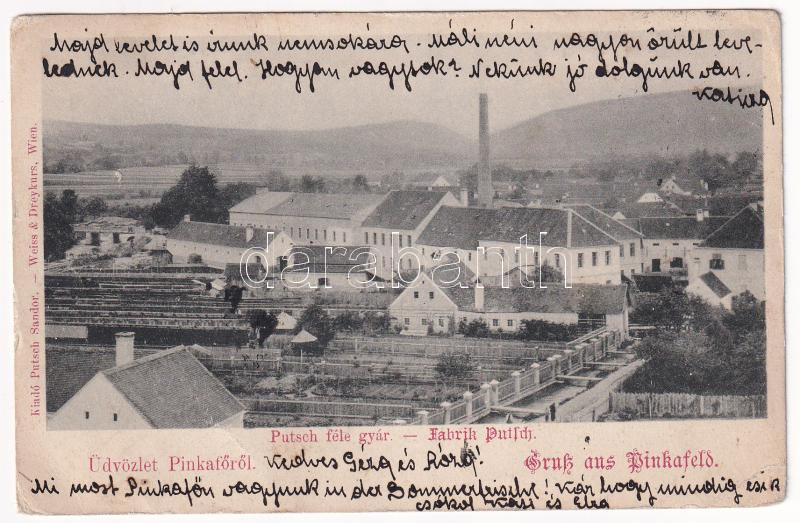 Majd levelet is irunk nemsokára. Máli néni nagyon örült leve-
lednek. Majd felel. Hogyan vagytok? Nekünk jó dolgunk van.
Kiadó Putsch Sandor. — Weiss & Dreykurs, Wien.
darabanth
Putsch féle gyár. — Fabrik Putsch.
Üdvözlet Pinkafőről.
Kedves Géza és Róza!
Gruß aus Pinkafeld.
Mi most Pinkafőn vagyunk in der Sommerfrische! Kár hogy mindig esik
csókol Kati és Elza